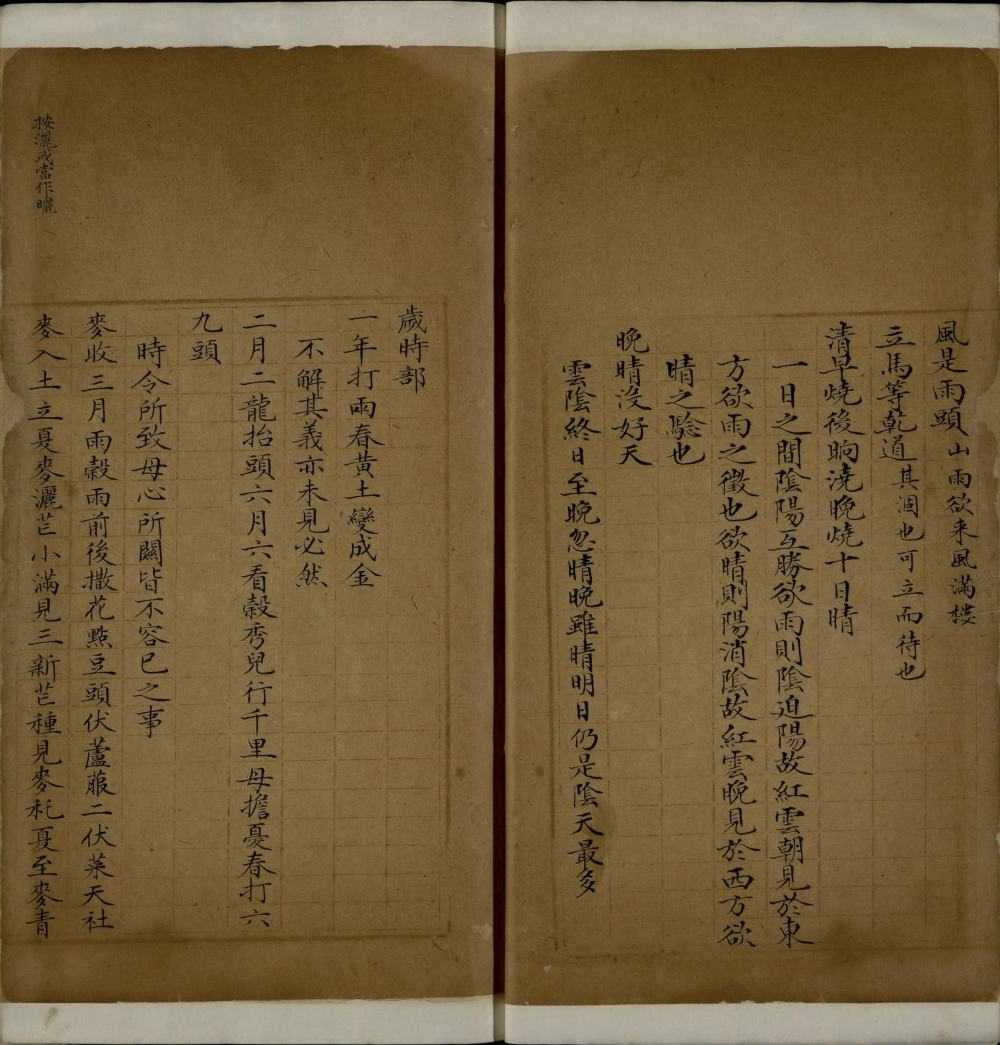 風是雨頭山雨欲来風滿楼
立馬等乹道其涸也可立而待也
清早燒後晌澆晚燒十日晴
一日之間陰陽互勝欲雨則陰迫陽故紅雲朝見於東
方欲雨之徵也欲晴則陽消陰故紅雲晚見於西方欲
晴之驗也
晚晴没好天
雲陰終日至晚忽晴晚雖晴明日仍是陰天最多
歲時部
一年打兩春黃土變成金
不解其義亦未見必然
二月二龍抬頭六月六看穀秀兒行千里母擔憂春打六
九頭
時令所致母心所關皆不容已之事
麥收三月雨穀雨前後撒花點豆頭伏蘆菔二伏菜天社
麥入土立夏麥灑芒小滿見三新芒種見麥秅夏至麥青
按灑或當作曬